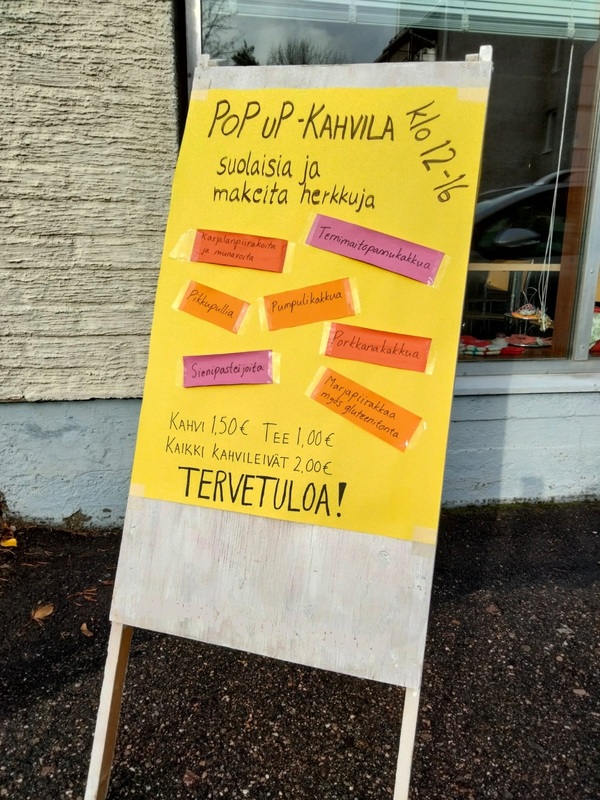 POP UP-KAHVILA
klo 12-16
suolaisia ja
makeita herkkuja
Karjalanpiirakoita
ja munavoita
Ternimaitopannukakkua
Pikkupullia
Pumpulikakkua
Porkkanakakkua
Sienipasteijoita
Marjapiirakkaa
myös gluteenitonta
KAHVI 1,50€ TEE 1,00€
KAIKKI KAHVILEIVÄT 2,00€
TERVETULOA!